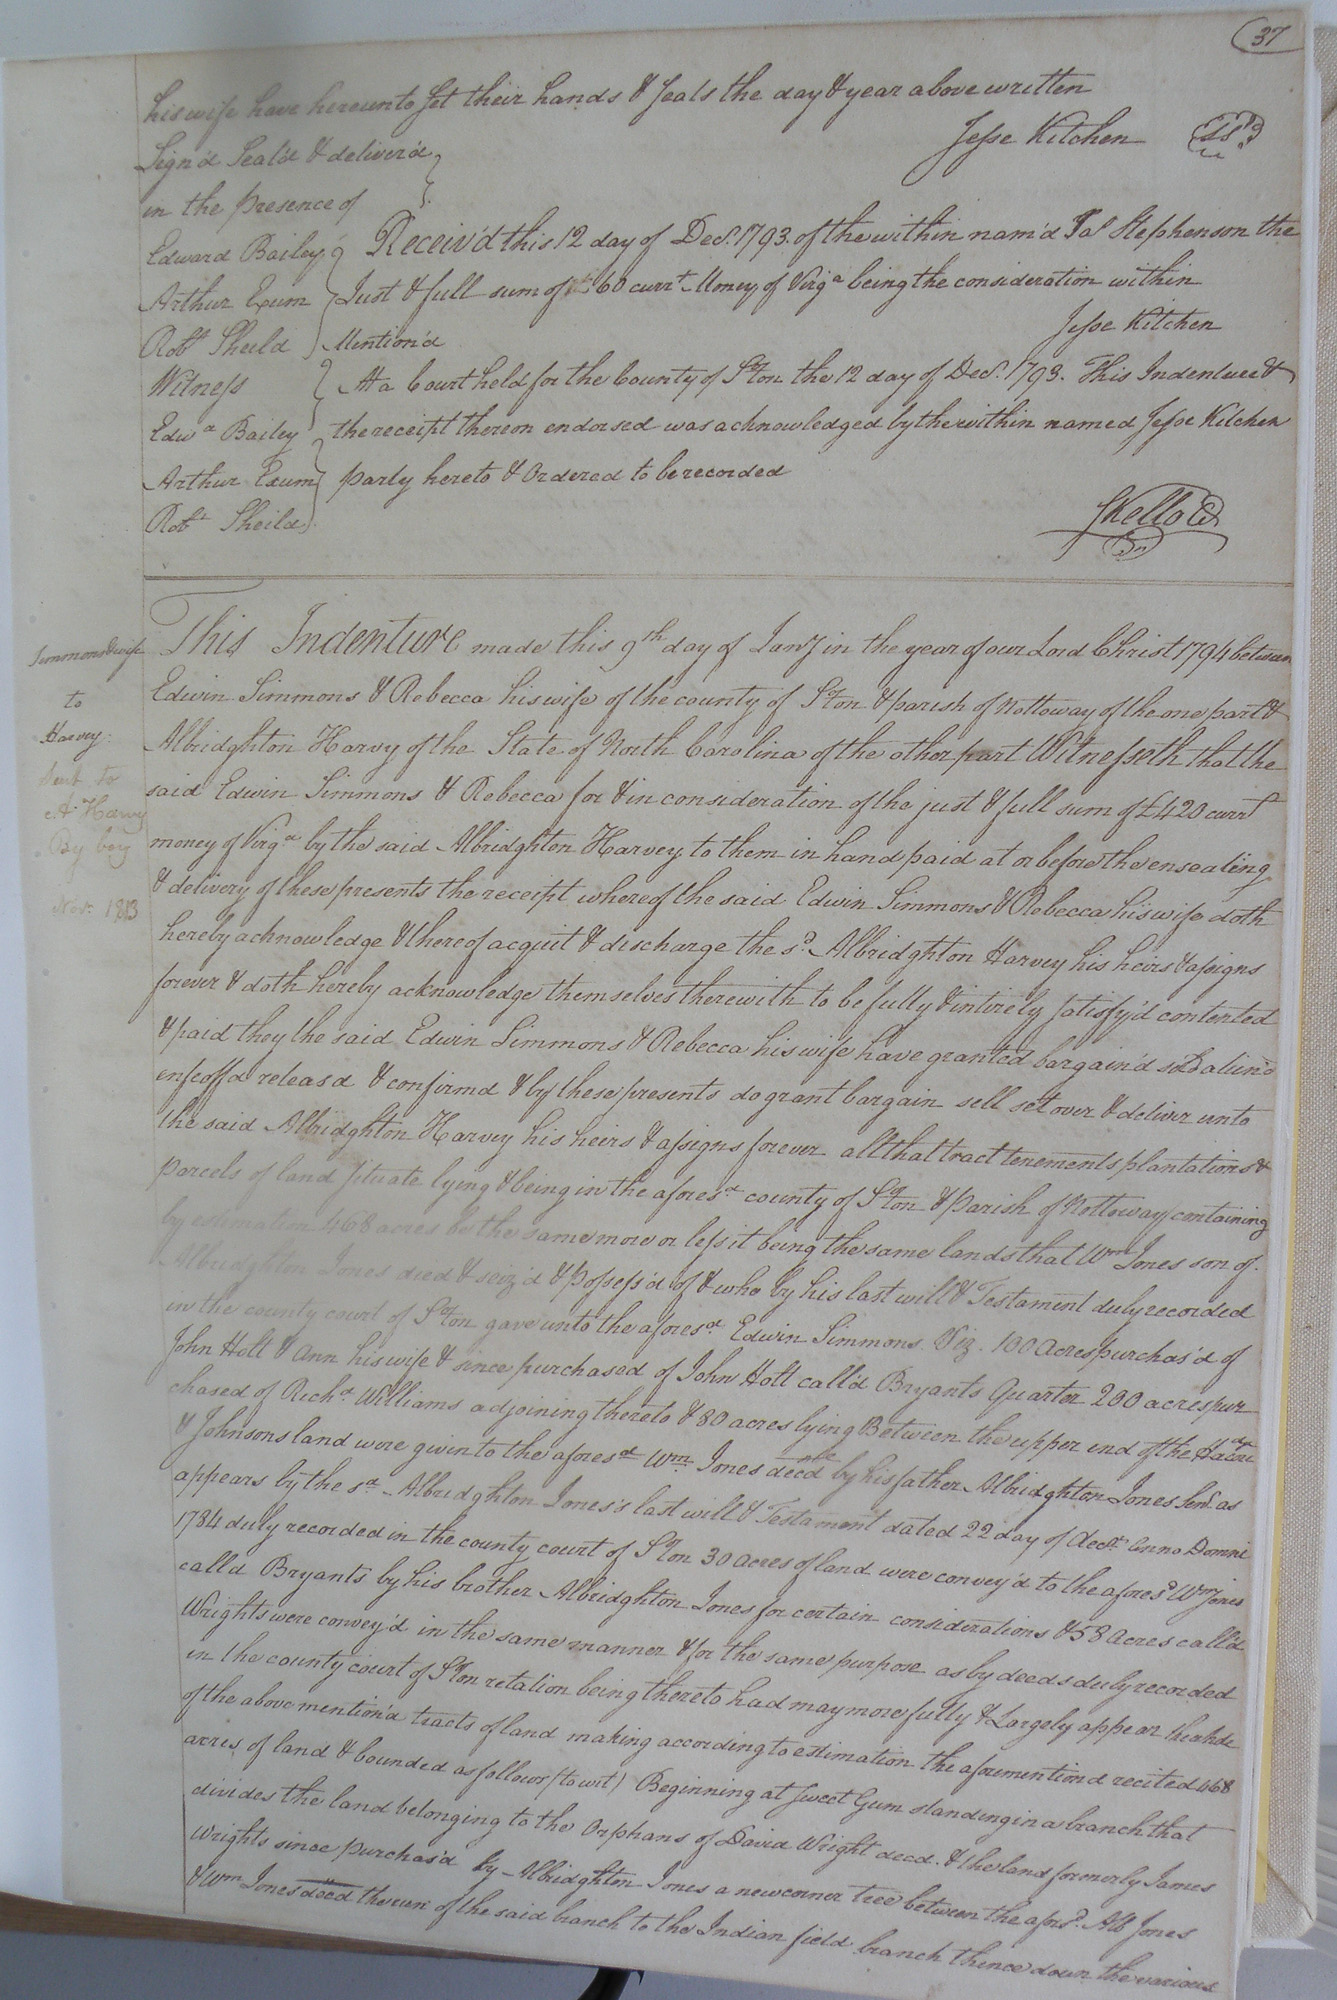 37
his wife have hereunto set their hands & seals the day & year above written
Sign'd Seal'd & deliver'd
Jesse Kitchen LS
in the presence of
Edward Bailey
Arthur Exum
Robt Sheild
Receiv'd this 12 day of Decr. 1793. of the within nam'd Jas Stephenson the
Just & full sum of £60 currt Money of Virga being the consideration within
Mention'd
Jesse Kitchen
Witness
Edwd Bailey
Arthur Exum
Robt Sheild
At a Court held for the County of Sºton the 12 day of Decr. 1793. This Indenture &
the receipt thereon endorsed was acknowledged by the within named Jesse Kitchen
party hereto & Ordered to be recorded
SKello Ct
Simmons & wife
to
Harvey
Sent to
A Harvey
By boy
Novr. 1813
This Indenture made this 9th day of Jany in the year of our Lord Christ 1794 between
Edwin Simmons & Rebecca his wife of the county of Sºton & parish of Nottoway of the one part &
Albridghton Harvy of the State of North Carolina of the other part Witnesseth that the
said Edwin Simmons & Rebecca for & in consideration of the just & full sum of £420 currt
money of Virga by the said Albridghton Harvey to them in hand paid at or before the ensealing
& delivery of these presents the receipt whereof the said Edwin Simmons & Rebecca his wife doth
hereby acknowledge & thereof acquit & discharge the sd. Albridghton Harvey his heirs & assigns
forever & doth hereby acknowledge themselves therewith to be fully & intirely satisfy'd contented
& paid they the said Edwin Simmons & Rebecca his wife have granted bargain'd sold alien'd
enfeoff'd releas'd & confirmd & by these presents do grant bargain sell set over & deliver unto
the said Albridghton Harvey his heirs & assigns forever all that tract tenements plantations &
parcels of land situate lying & being in the aforesd county of Sºton & Parish of Nottoway containing
by estimation 468 acres be the same more or less it being the same lands that Wm Jones son of
Albridghton Jones died & seiz'd & possess'd of & who by his last will & Testament duly recorded
in the county court of Sºton gave unto the aforesd. Edwin Simmons Viz. 100 acres purchas'd of
John Holt & Ann his wife & since purchased of John Holt call'd Bryants Quarter 200 acres pur
chased of Richd. Williams adjoining thereto & 80 acres lying Between the upper end of the
& Johnsons land were given to the aforesd Wm. Jones decd by his father Albridghton Jones Senr. as
appears by the sd Albridghton Jones's last will & Testament dated 22 day of Anno Domni
1784 duly recorded in the county court of Sºton 30 acres of land were convey'd to the aforesd Wm Jones
calld Bryants by his brother Albridghton Jones for certain considerations & 58 acres call'd
Wrights were convey'd in the same manner & for the same purpose as by deeds duly recorded
in the county court of Sºton relation being thereto had may more fully & Largely appear the
of the above mention'd tracts of land making according to estimation the aforementiond recited 468
acres of land & bounded as follows (to wit) Beginning at Sweet Gum standing in a branch that
divides the land belonging to the Orphans of David Wright decd. & the land formerly James
Wrights since purchas'd by Albridghton Jones a new corner tree between the aforsd. Alb Jones
& Wm Jones decd the run of the said branch to the Indian field branch thence down the various